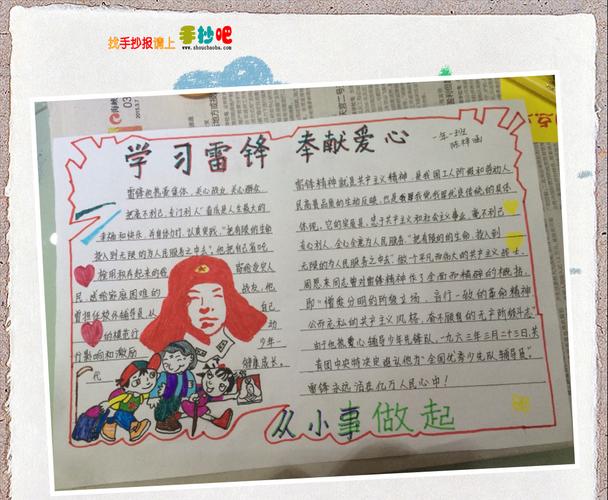 找手抄报请上 手抄吧
www.shouchaoba.com
学习雷锋 奉献爱心
一年一班
雷锋他热爱集体，关心战友，关心群众，
把毫不利己，专门利人"看成是人生最大的
幸福和快乐，并身体力行，认真实践，"把有限的生命
投入到无限的为人民服务之中去"。他把自己省吃
俭用积攒起来的钱 寄给受灾人
民，送给家庭困难的 战友，他
曾担任校外辅导员，从 自己
的模范行 动
行影响和激励 少年一
代 健康成长。
雷锋精神就是共产主义精神，是我国工人阶级和劳动人
民高贵品质的生动反映，也是我国优良传统的具体
体现。它的实质是，忠于共产主义和社会主义事业，毫不利己
专心利人，全心全意为人民服务，"把有限的的生命，投入到
无限的为人民服务之中去"，做个平凡而伟大的共产主义战士。
周恩来同志曾对雷锋精神作了全面而精辟的概括，
即"憎爱分明的阶级立场，言行一致的革命精神
公而忘私的共产主义风格，奋不顾身的无产阶级斗志"
由于他热爱心辅导少年先锋队，一九六三年三月二十三日，共
青团中央特决定追认他为"全国优秀少先队辅导员"。
雷锋永远活在亿万人民心中！
从小事做起